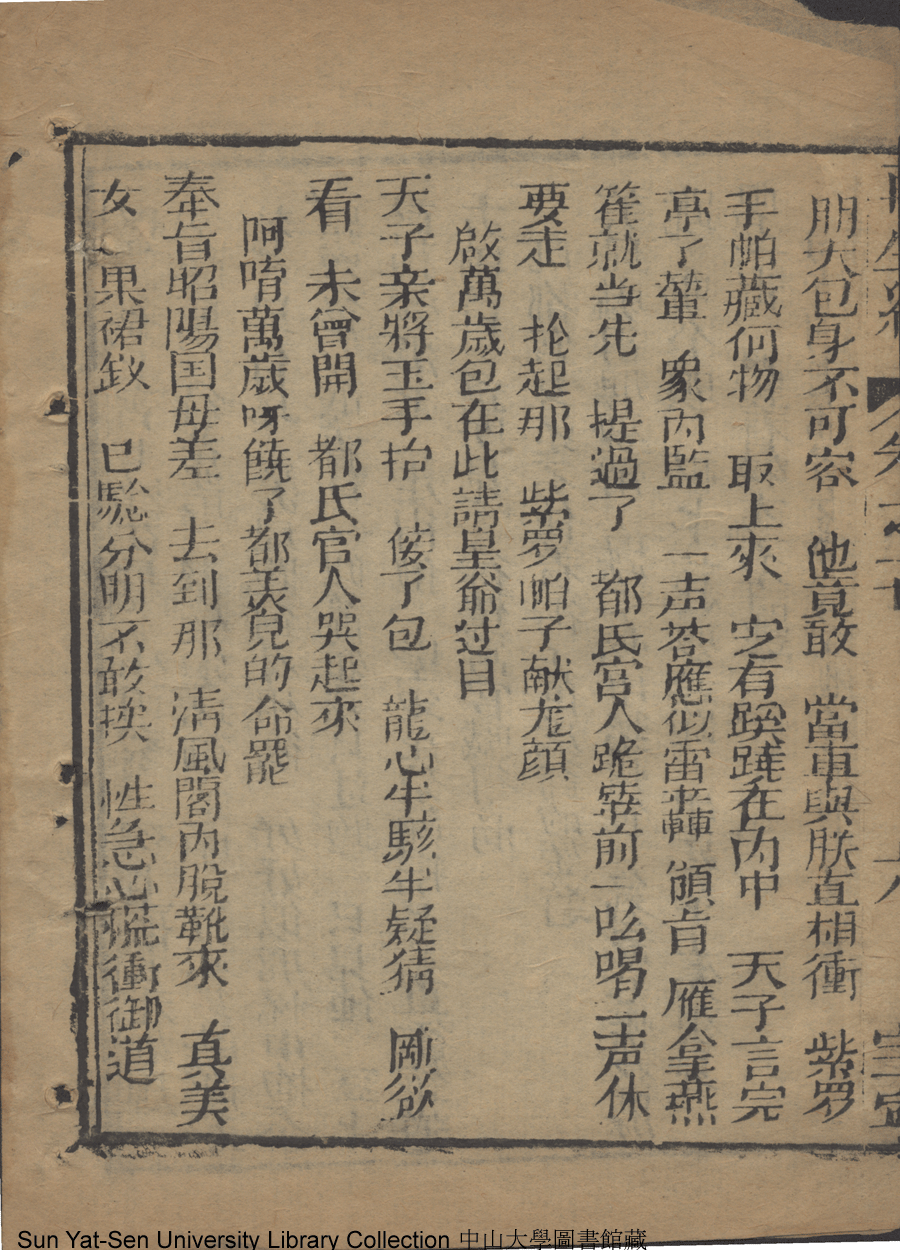 再生緣 卷之十 十八 宝寧
朋大包身不可容 他竟敢 當車與朕直相衝 紫罗
手帕藏何物 取上來 必有蹊蹺在內中 天子言完
亭了輦 衆內監 一声荅應似雷轟 領旨 雁拿燕
雀就当先 提過了 都氏宮人跪輦前 一吆喝 二声休
要走 抡起那 紫罗帕子献龙顔
啟萬歲包在此請皇爺过目
天子亲將玉手抬 接了包 龍心半駭半疑猜 剛欲
看 未曾開 都氏官人哭起來
呵唷萬歲呀饒了都美兒的命罷
奉旨昭陽国母差 去到那 清風閣內脫靴來 真美
女 果裙釵 已驗分明不敢挨 性急心慌衝御道
Sun Yat-Sen University Library Collection 中山大學圖書館藏